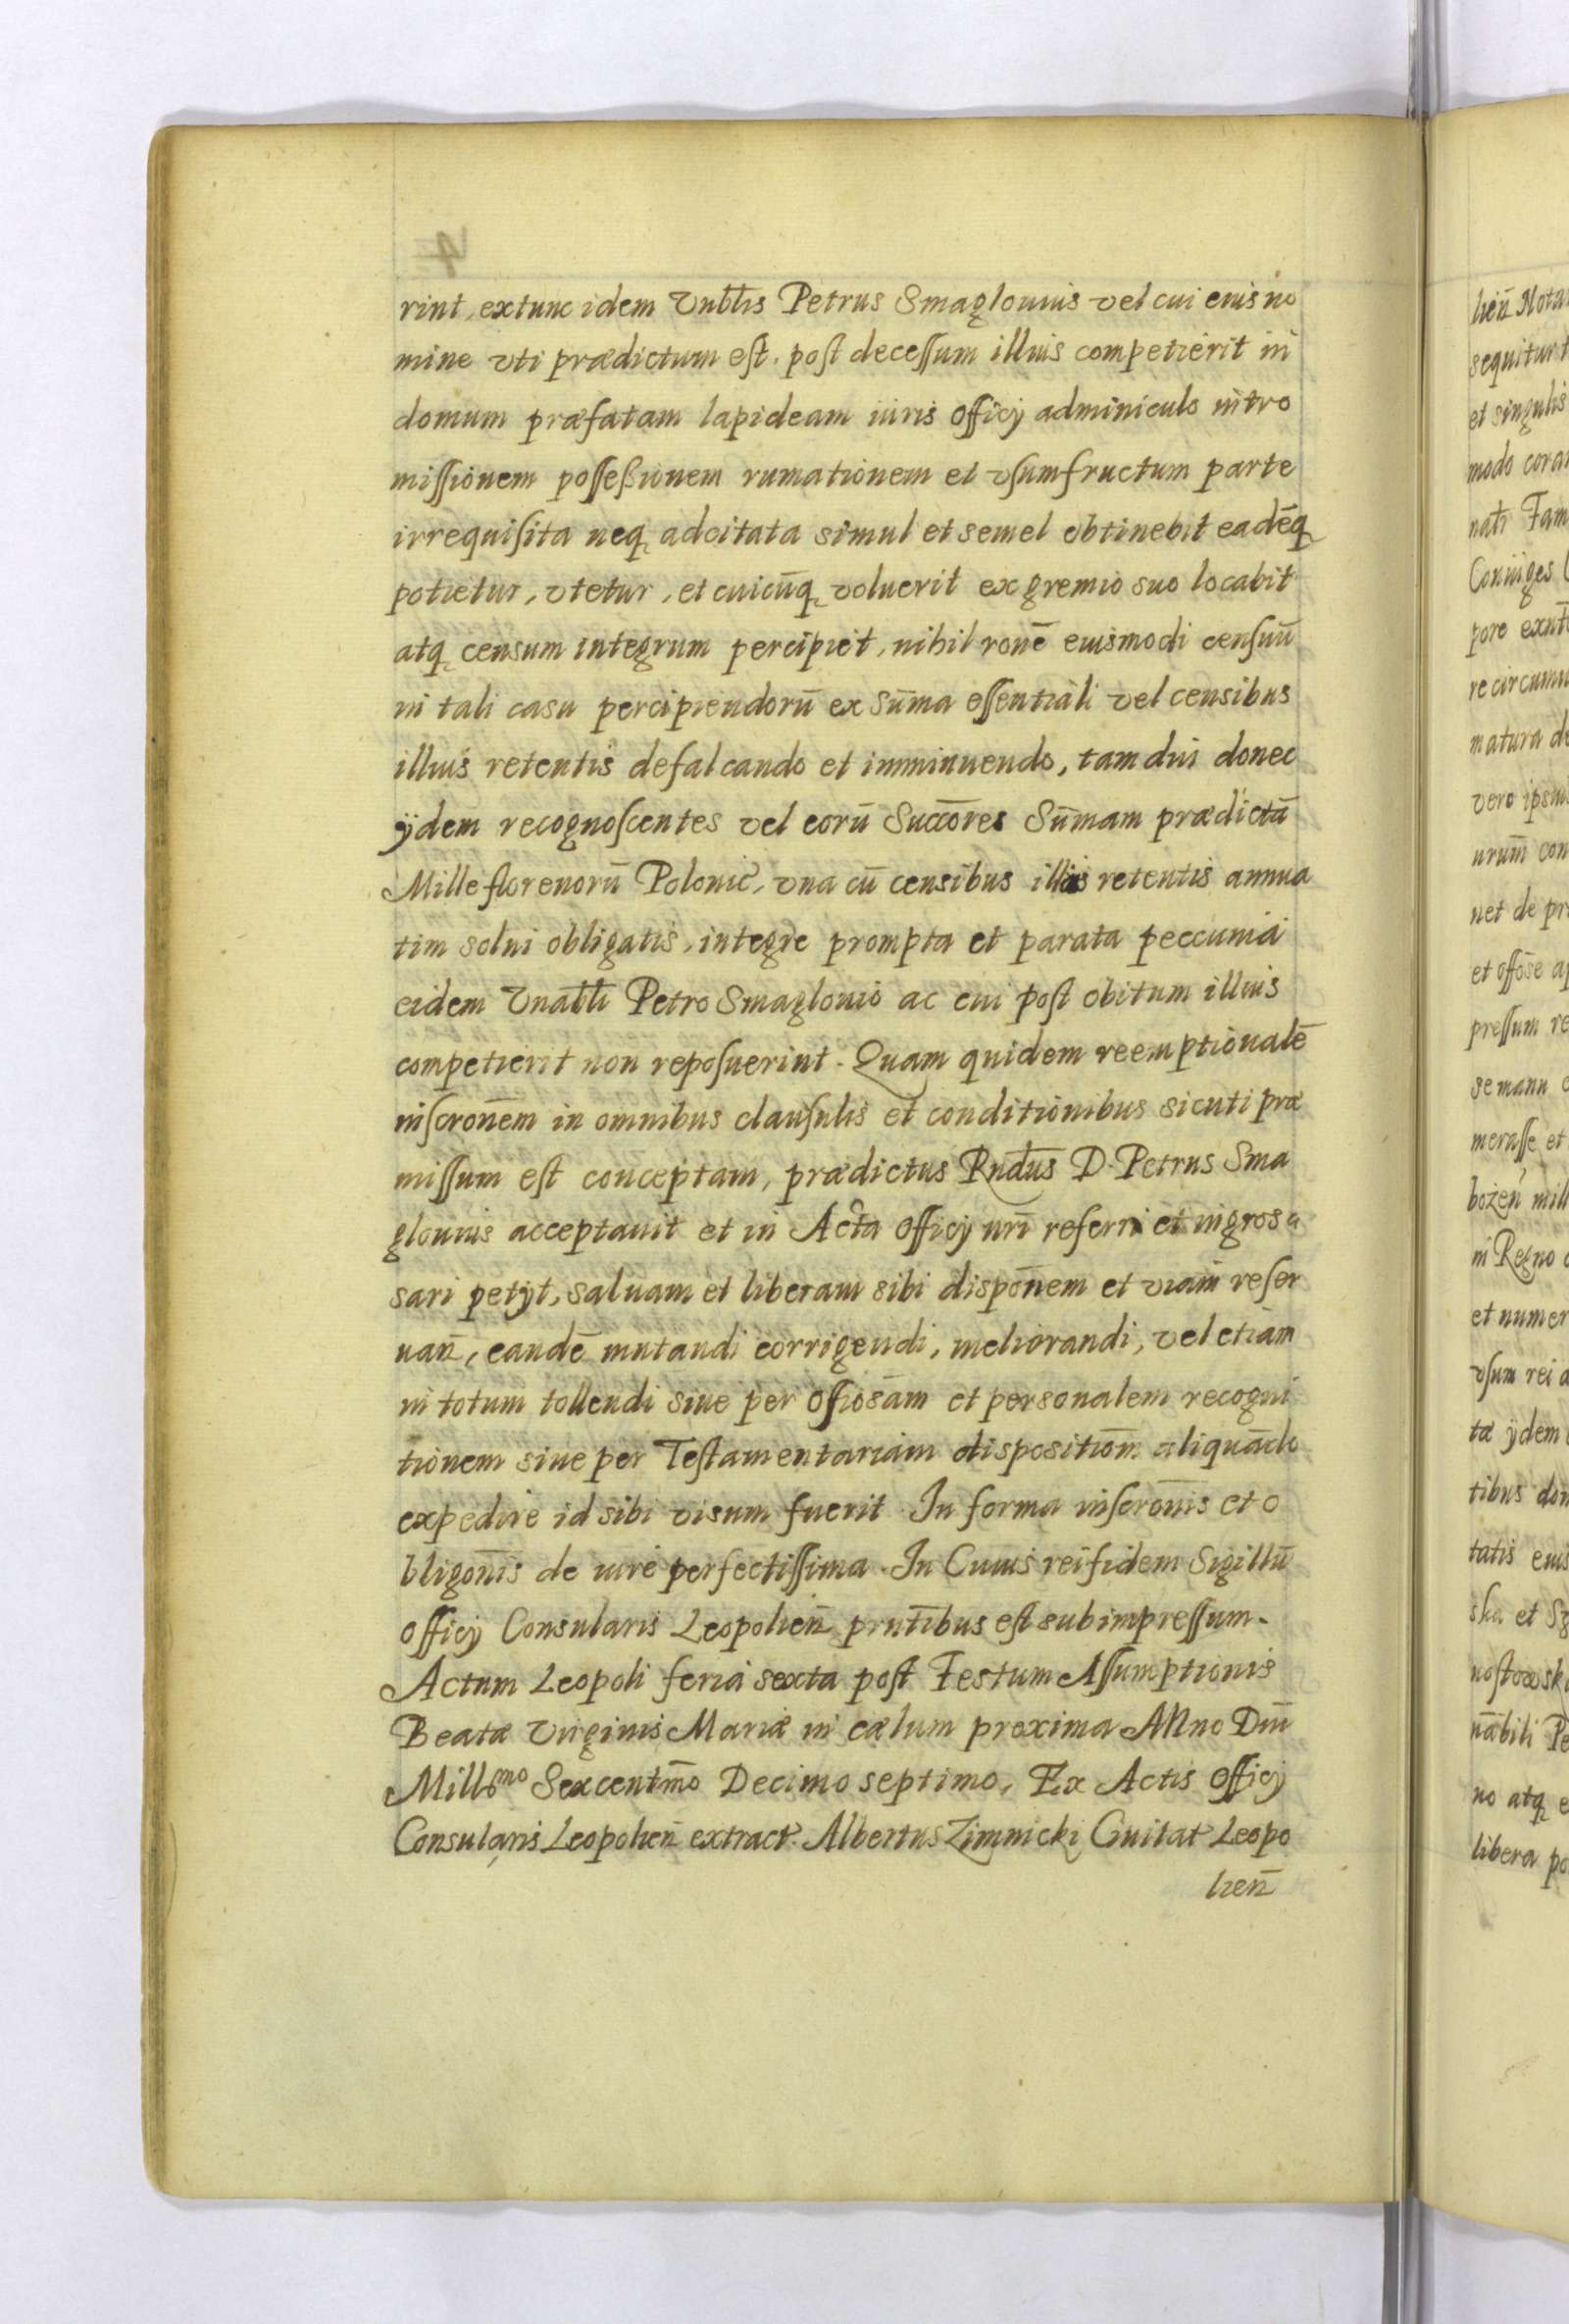 rint, extunc idem Vnbłis Petrus Smaglouius vel cui eius no
mine vti prædictum eſt. poſt deceſſum illius competierit in
domum præfatam lapideam iuris officij adminiculo intro
miſſionem poſſeßionem rumationem et vſumfructum parte
irrequiſita neq adcitata simul et semel obtinebit eadēq
potietur, vtetur, et cuicūq voluerit ex gremio suo locabit
atq censum integrum percipiet, nihil ronē eiusmodi cenſuū
in tali casu percipiendorū ex sūma eſſentiali vel censibus
illius retentis defalcando et imminuendo, tam diu donec
ijdem recognoſcentes vel eorū Succōres Sūmam prædictā
Mille florenorū Polonic, vna cū censibus illius retentis annua
tim solui obligatis, integre prompta et parata peccunia
eidem Vnabłi Petro Smaglouio ac cui poſt obitum illius
competierit non repoſuerint. Quam quidem reemptionalē
inſcronēm in omnibus clauſulis et conditionibus sicuti præ
miſſum eſt conceptam, prædictus Rndus D. Petrus Sma
glouius acceptauit et in Acta officij nrī referri et ingrosa
sari petijt, saluam et liberam sibi disponēm et viam reſer
uan̄, eandē mutandi corrigendi, meliorandi, vel etiam
in totum tollendi siue per offiosām et personalem recogni
tionem siue per Teſtamentariam dispositiōm aliquādo
expedire id sibi visum fuerit. In forma inſcronīs et o
bligonīs de iure perfectiſſima. In Cuius rei fidem Sigillū
officij Consularis Leopolien̄ prntībus eſt subimpreſſum.
Actum Leopoli feria sexta poſt Festum Aſſumptionis
Beatæ Virginis Mariæ in cælum proxima Anno Dnī
Millomo Sexcentm̄o Decimo septimo, Ex Actis officij
Consularis Leopolien̄ extract. Albertus Zimnicki Ciuitat Leopo
lien̄
lien̄ Nota
sequitur t
et singulis
modo cora
natī Fam
Coniuges
pore exnt
re circum
matura de
vero ipsius
urum̄ con
net de pr
et offōse a
preſſum re
se manu
meraſſe et
bożen mill
in Regno
et numer
vſum rei a
tæ ijdem
tibus dom
tatis eius
ska et Sz
noſtowsk
nābili Pe
no atq e
libera po